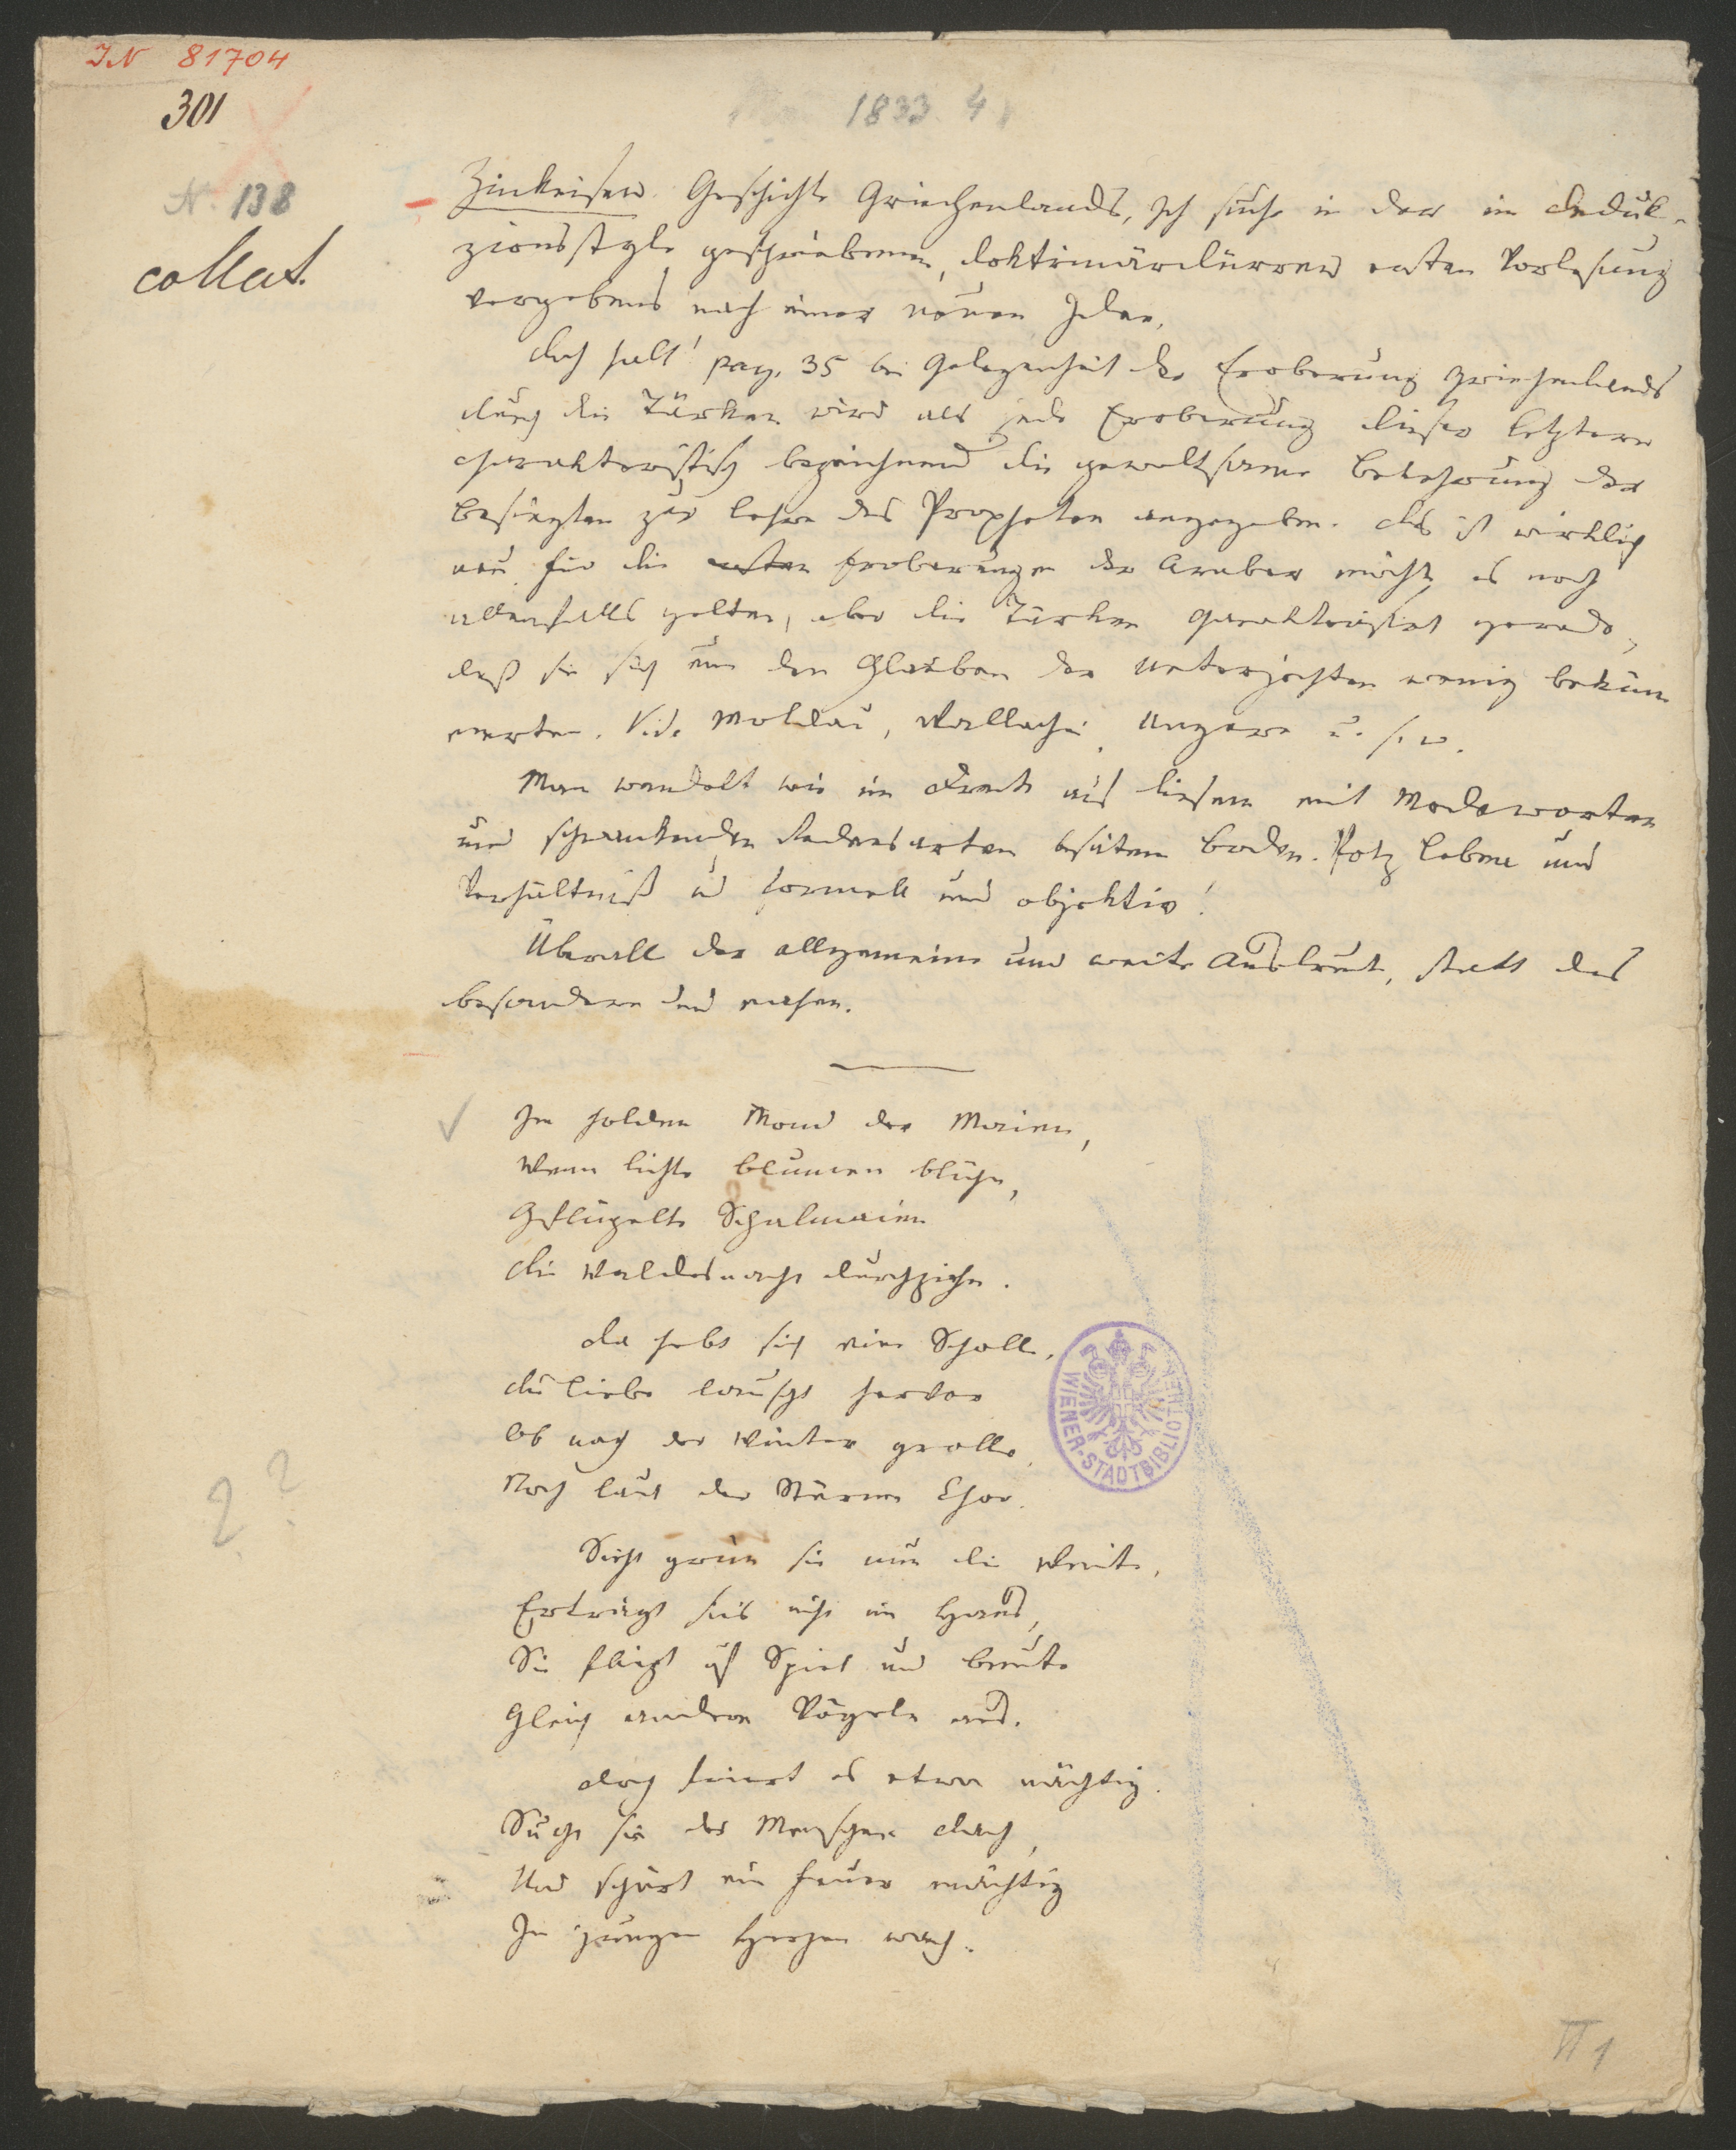 IN 81704
301
1833. 4
N. 138
collat.
Zinkeisen Geschichte Griechenlands, Ich suche in der im Deduk-
zionsstyle geschriebenen, doktrinärdürren ersten Vorlesung
vergebens nach einer neuen Idee.
Doch halt! pag. 35 bei Gelegenheit der Eroberung Griechenlands
durch die Türken wird als jede Eroberung dieser letztern
charakteristisch bezeichnend die gewaltsame Bekehrung der
Besiegten zur Lehre des Propheten angegeben. Das ist wirklich
neu für die ersten Eroberungen der Araber möchte es noch
allenfalls gelten, aber die Türken charakterisirt gerade,
daß sie sich um den Glauben der Unterjochten wenig beküm
merten. Vide Moldau, Wallachei, Ungarn u. s. w.
Man wandelt wie im Dreck auf diesem mit Modeworten
und schwankenden Redensarten besäten Boden. Potz Leben und
Verhältniß und formell und objektiv!
Überall der allgemeine und weite Ausdruck, statt des
besondern und nahen.
Im holden Mond der Maien,
Wenn lichte Blumen blühn,
Geflügelte Schalmeien
Die Waldesnacht durchziehn.
Da hebt sich eine Scholle,
Die Liebe lauscht hervor
Ob noch der Winter grolle,
Noch laut der Stürme Chor.
Sieht grün sie nun die Weite,
Erträgt sies nicht im Haus,
Sie fliegt auf Spiel und Beute
Gleich andern Vögeln aus.
Doch friert es etwa nächtig.
Sucht sie der Menschen Dach,
Und schürt ein Feuer mächtig
In jungen Herzen wach.
??
WIENER-STADTBIBLIOTHEK
VI 1